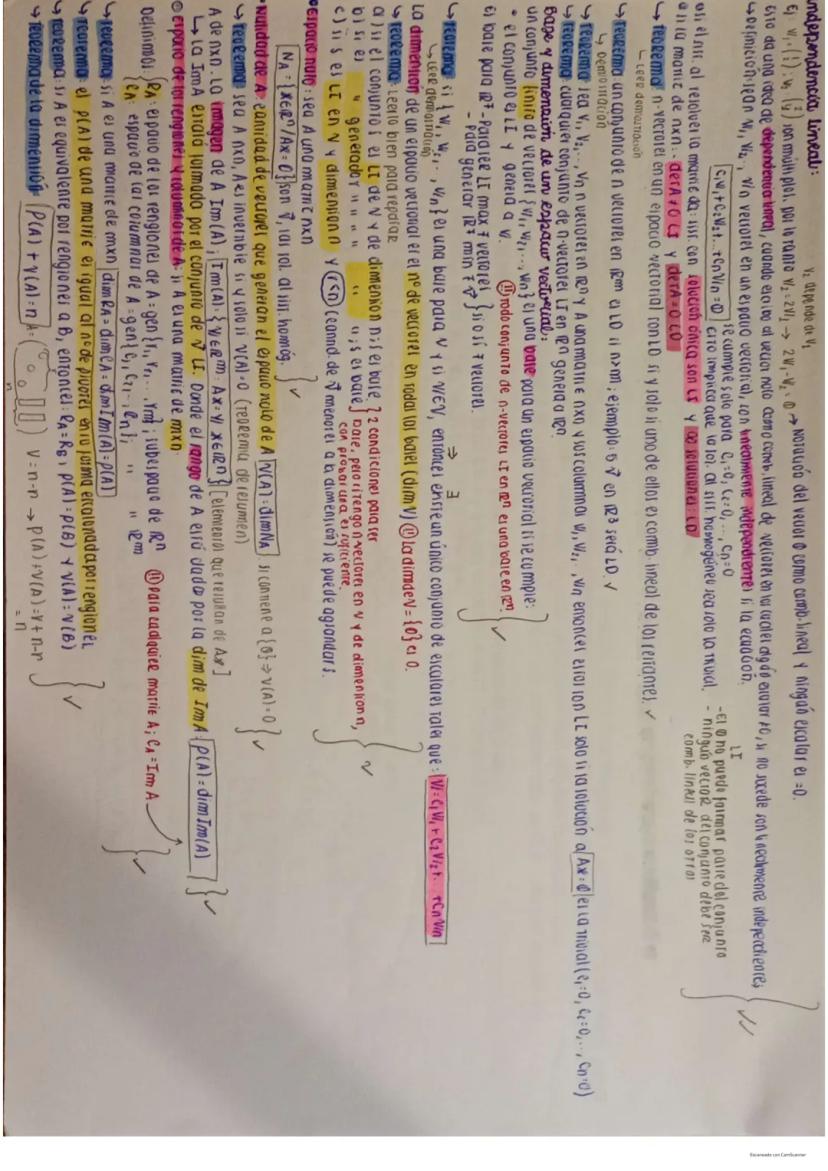 independencia lineal:
v₂ depende de v₁
Ej: v₁=(½); v₂ (²₄) son múltiplos, por lo tanto v₂=2v₁ → 2v₁-v₂=0 → notación del vector 0 como comb. lineal y ningún escalar es =0.
Esto da una idea de dependencia lineal, cuando escribo al vector nulo como comb. lineal de vectores en los cuales algún escalar ≠0, si no sucede son linealmente independientes
↳ Definición: sean v₁, v₂..., vn vectores en un espacio vectorial, son linealmente independientes si la ecuación:
c₁v₁+c₂v₂+...+cnvn=0 se cumple solo para c₁=0, c₂=0, ..., cn=0
esto implica que la sol. al sist. homogéneo sea solo la trivial.
- El 0 no puede formar parte del conjunto LI
- ningún vector del conjunto debe ser comb. lineal de los otros
así el sist. al resolver la matriz da: sist. con solución única son LI y ∞ soluciones: LD
o si la matriz de nxn: det A≠0 LI y det A=0 LD
↳ teorema: n-vectores en un espacio vectorial son LD si y solo si uno de ellos es comb. lineal de los restantes. ✓
↳ Leer demostración
↳ teorema un conjunto de n vectores en ℝᵐ es LD si n>m; ejemplo: 5 v⃗ en ℝ³ será LD. ✓
↳ Demostración
↳ teorema sea v₁, v₂, ..., vn n vectores en ℝⁿ y A una matriz nxn y sus columnas v₁, v₂, ..., vn entonces estos son LI solo si la solución a Ax=0 es la trivial (c₁=0, c₂=0, ..., cn=0)
↳ teorema cualquier conjunto de n-vectores LI en ℝⁿ genera a ℝⁿ.
Base y dimensión de un espacio vectorial:
un conjunto finito de vectores {v₁, v₂, ..., vn} es una base para un espacio vectorial si se cumple:
• el conjunto es LI y genera a V. todo conjunto de n-vectores LI en ℝⁿ es una base en ℝⁿ.
Ej base para ℝ⁷ - Para ser LI max 7 vectores } si o si 7 vectores.
- Para generar ℝ⁷ min 7 v⃗
↳ teorema si {v₁, v₂, ..., vn} es una base para V y si v∈V, entonces existe un único conjunto de escalares tales que: v=c₁v₁+c₂v₂+...+cnvn
↳ Leer demostración
La dimensión de un espacio vectorial es el nº de vectores en todas las bases (dim V) La dim de V={0} es 0.
↳ teorema: leerlo bien para repasar
a) si el conjunto S es LI de V y de dimensión n; S es base. } 2 condiciones para ser
b) si es " generador " " " " " ; S es base } base, pero si tengo n vectores en V y de dimensión n, con probar una es suficiente.
c) si S es LI en V y dimensión n y r<n (cantid. de v⃗ menores a la dimensión) se puede agrandar S.
• espacio nulo: sea A una matriz nxn
N_A={x∈ℝⁿ/Ax=0} son v⃗, las sol. al sist. homóg.
• nulidad de A: cantidad de vectores que generan el espacio nulo de A ν(A)=dim N_A si contiene a {0} ⇒ ν(A)=0
↳ teorema sea A nxn, A es invertible si y solo si ν(A)=0 (teorema de resumen)
A de nxn. La imagen de A Im(A); Im(A)={y∈ℝᵐ: Ax=y x∈ℝⁿ} [elementos que resultan de Ax]
↳ La Im A estará formado por el conjunto de v⃗ LI. Donde el rango de A está dado por la dim de Im A: ρ(A)=dim Im(A)
espacio de los renglones y columnas de A: si A es una matriz de mxn
Definimos: R_A: espacio de los renglones de A = gen{r₁, r₂, ... rm}; subespacio de ℝⁿ
C_A: espacio de las columnas de A = gen{c₁, c₂, ... cn}; " " ℝᵐ para cualquier matriz A; C_A=Im A
↳ teorema: si A es una matriz de mxn dim R_A=dim C_A=dim Im(A)=ρ(A)
↳ teorema: el ρ(A) de una matriz es igual al nº de pivotes en su forma escalonada por renglones,
↳ teorema: si A es equivalente por renglones a B, entonces: R_A=R_B, ρ(A)=ρ(B) y ν(A)=ν(B)
↳ teorema de la dimensión ρ(A)+ν(A)=n ν=n-r → ρ(A)+ν(A)=r+n-r
=n
Escaneado con CamScanner